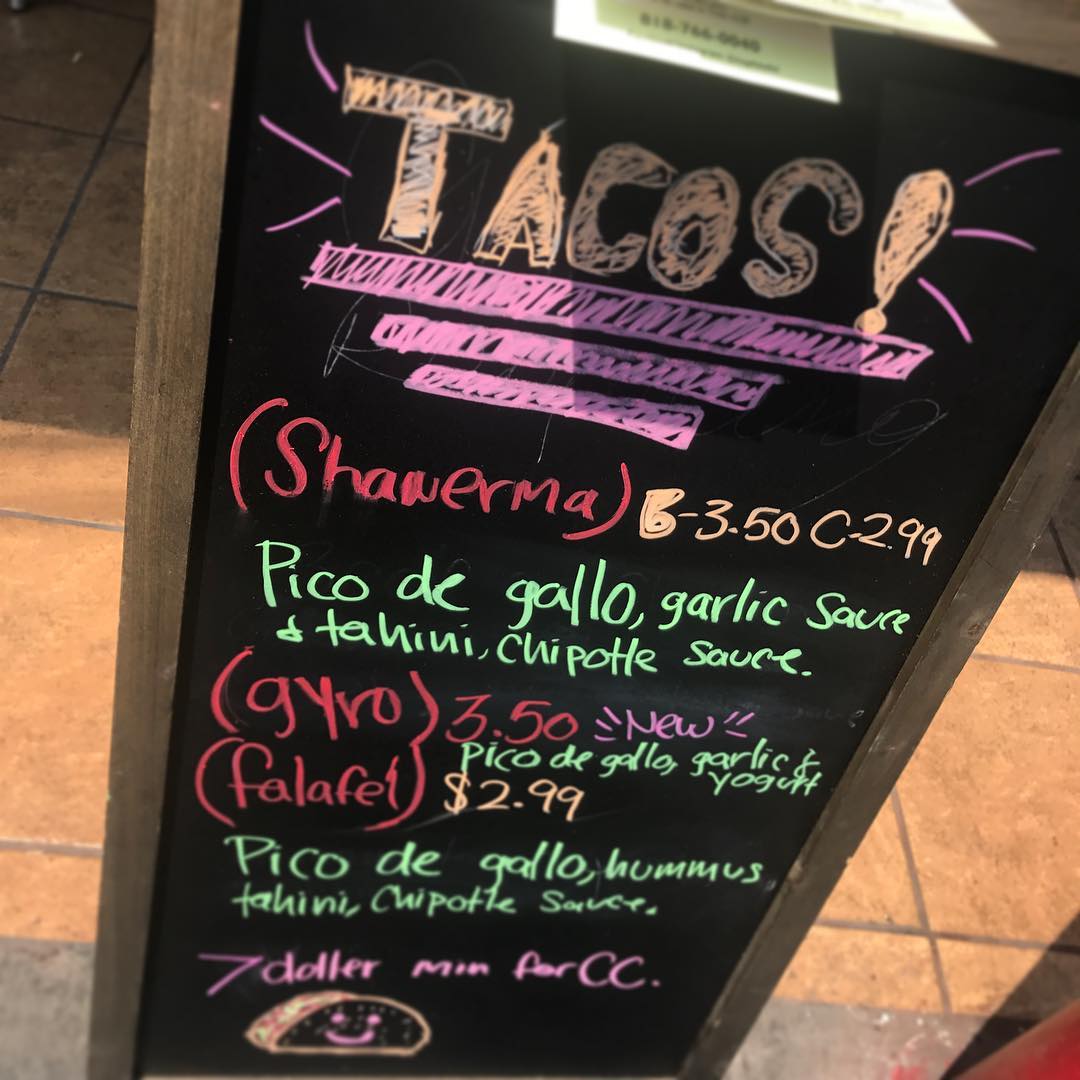 818-766-0040
TACOS!
(Shawerma) B-3.50 C-2.99
Pico de gallo, garlic sauce
& tahini, Chipotle sauce.
(gyro) 3.50 New
Pico de gallo, garlic &
yogurt
(falafel) $2.99
Pico de gallo, hummus
tahini, Chipotle sauce.
7 doller min for CC.